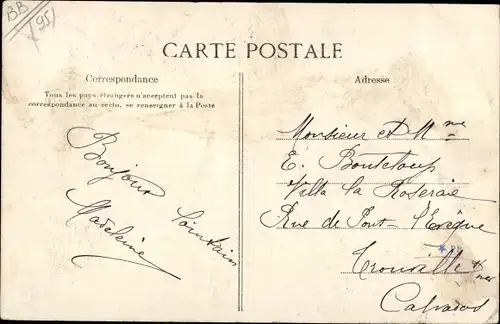 BB
95
CARTE POSTALE
Correspondance
Tous les pays étrangers n'acceptent pas la
correspondance au recto, se renseigner à la Poste
Bonjour
lointain
Madeleine
Adresse
Monsieur et Mme
E. Bouteloup
Villa la Roseraie
Rue de Pont-l'Evêque
Trouville s/mer
Calvados